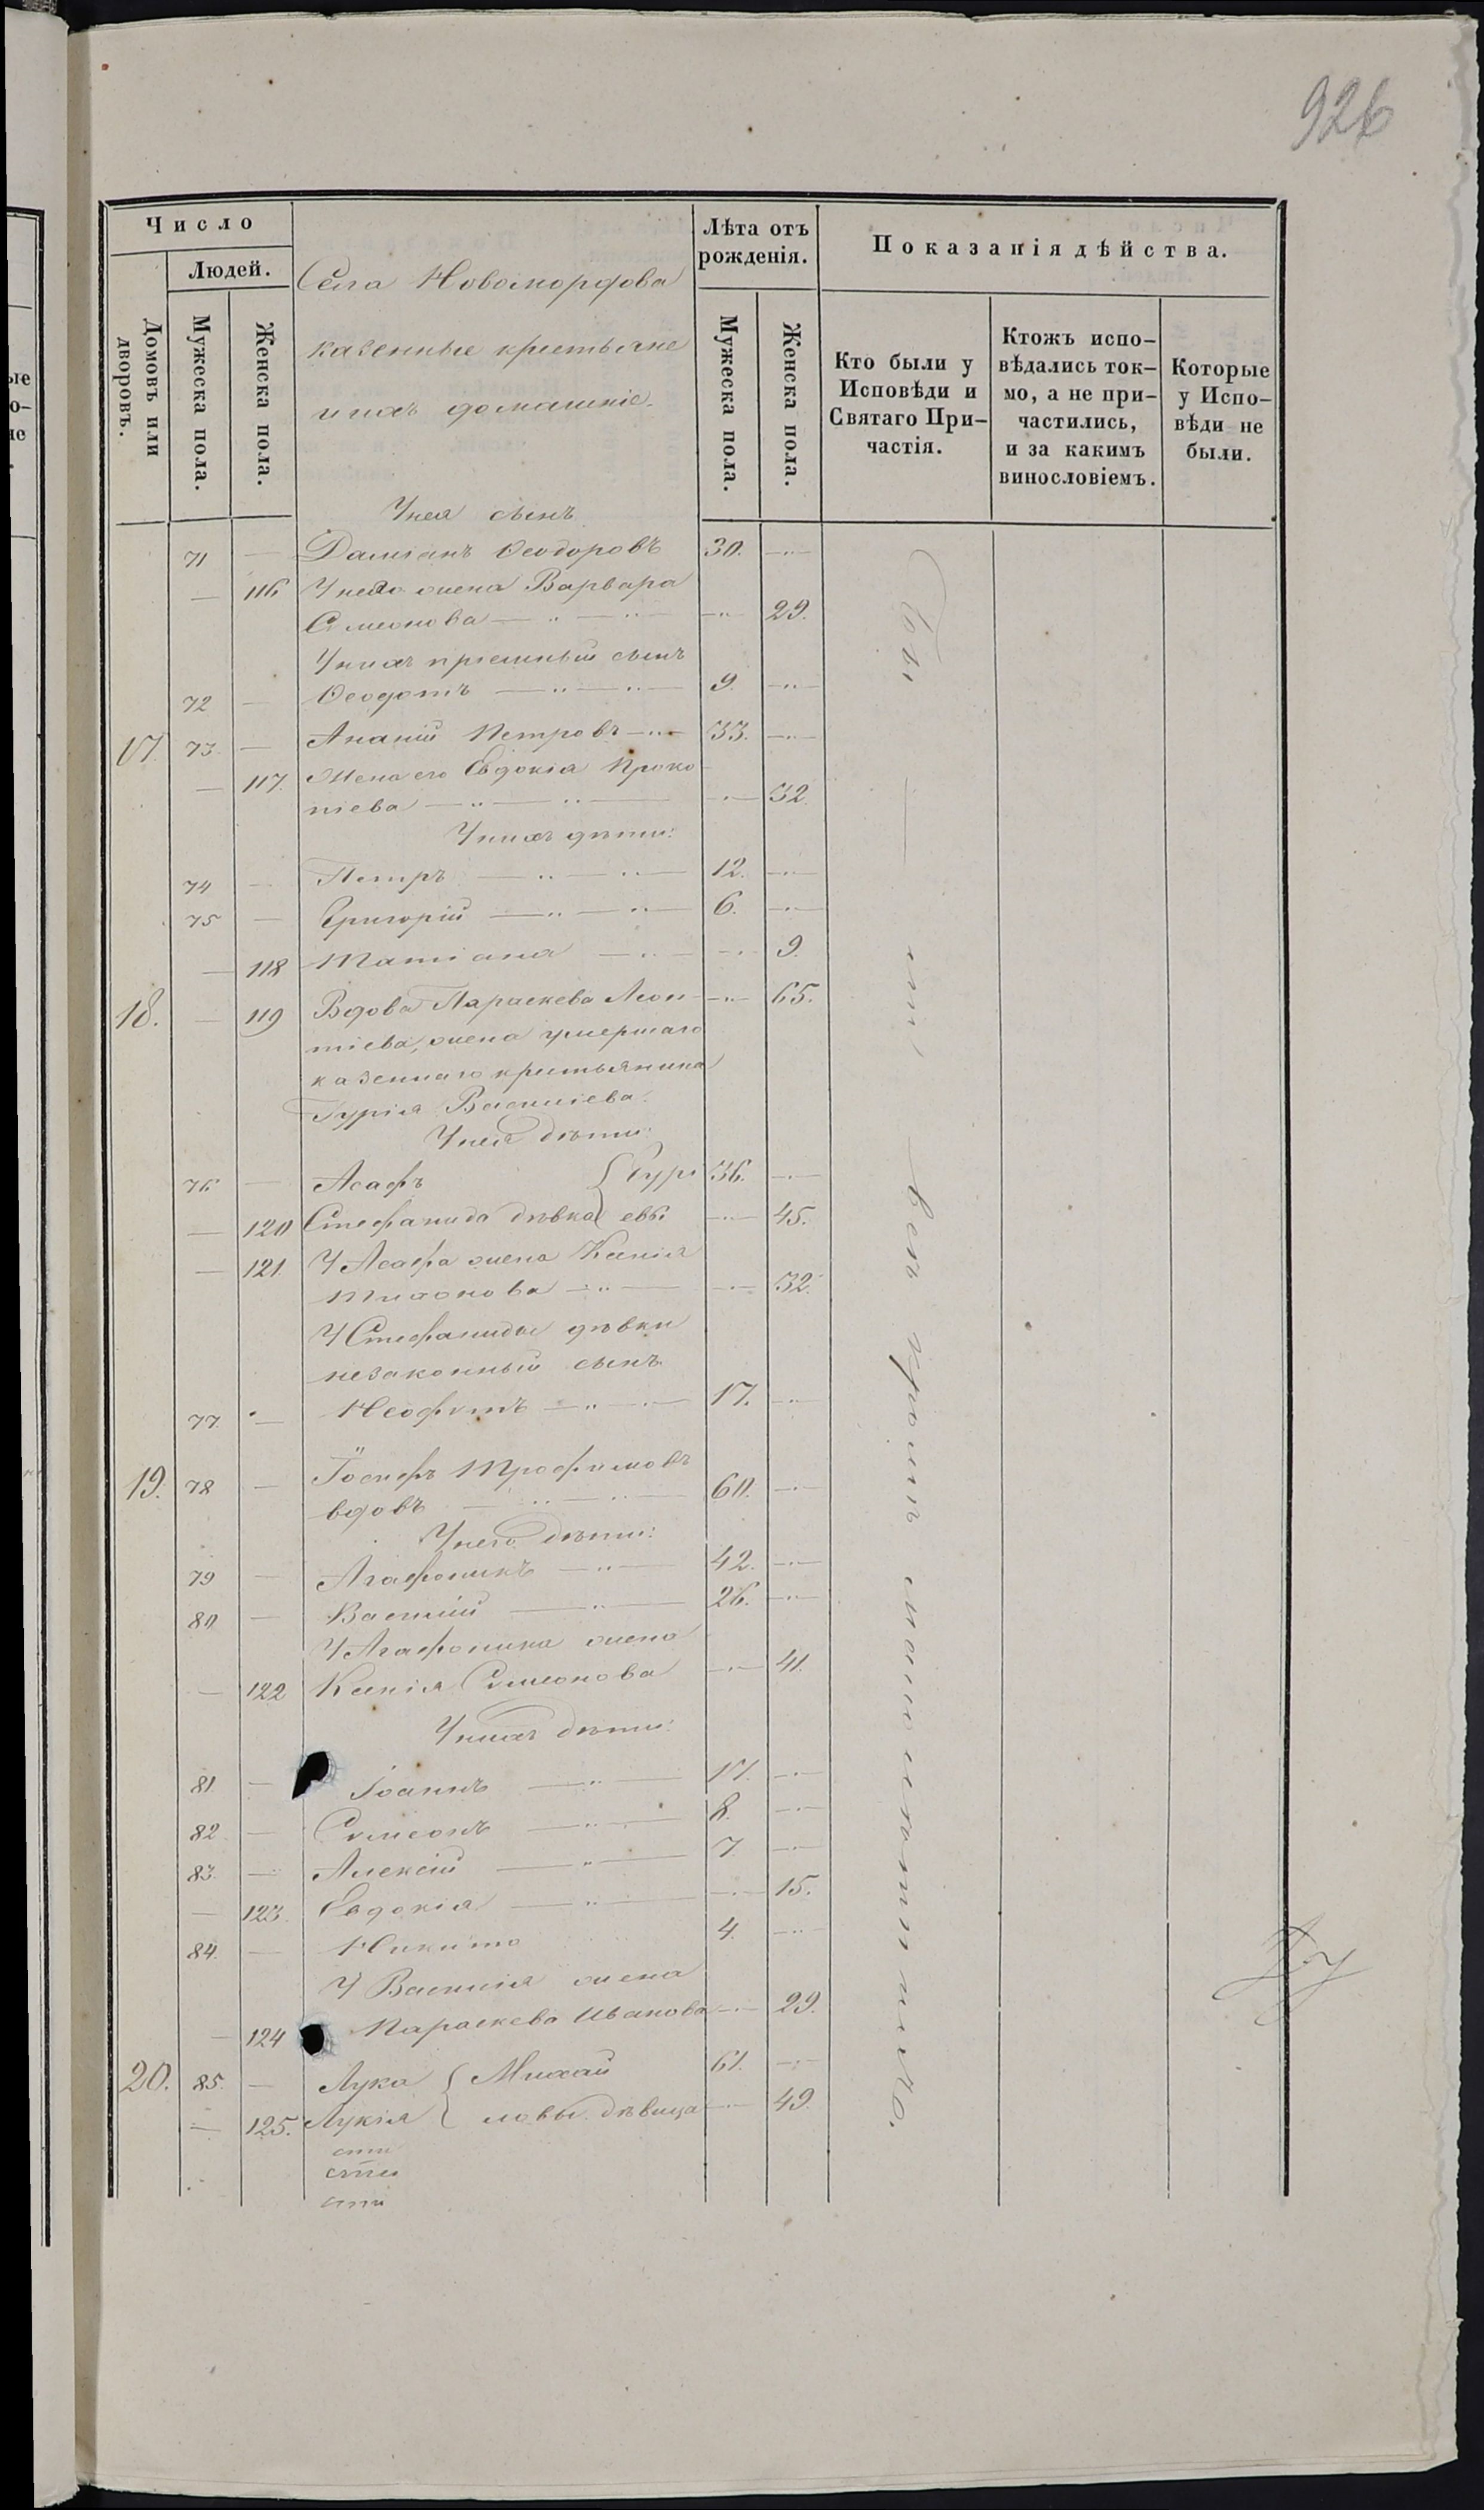 926
Число
Людей.
Домовъ или дворовъ.
Мужеска пола.
Женска пола.
Села Новомордова
казенные крестьяне
и ихъ домашніе.
Лѣта отъ
рожденія.
Мужеска пола.
Женска пола.
Показанія дѣйства.
Кто были у
Исповѣди и
Святаго При-
частія.
Ктожъ испо-
вѣдались ток-
мо, а не при-
частились,
и за какимъ
винословіемъ.
Которые
у Испо-
вѣди не
были.
У нея сынъ
71 — Даміанъ Ѳеодоровъ 30. —
— 116 У него жена Варвара
Симеонова — 29.
У нихъ пріемный сынъ
72 — Ѳеодотъ — 9. —
17. 73. — Ананій Петровъ — 33. —
— 117. Жена его Евдокія Проко
піева — 32.
У нихъ дѣти:
74 — Петръ — 12. —
75 — Григорій — 6. —
— 118 Татіана — 9.
18. — 119 Вдова Параскева Леон — 65.
тіева, жена умершаго
казеннаго крестьянина
Гурія Василіева.
У нея дѣти:
76 — Асафъ { Гурі 36. —
— 120 Стефанида дѣвка { евы — 45.
— 121. У Асафа жена Ксенія
Тихонова — 32.
У Стефаниды дѣвки
незаконный сынъ
77. — Неофитъ — 17. —
19. 78 — Іосифъ Трофимовъ
вдовъ — 60. —
У него дѣти:
79 — Агафоникъ — 42. —
80 — Василій — 26. —
У Агафоника жена
— 122 Ксенія Симеонова — 41.
У нихъ дѣти:
81 — Іоаннъ — 17. —
82 — Симеонъ — 8. —
83. — Алексій — 7 —
— 123. Евдокія — 15.
84. — Никита 4. —
У Василія жена
— 124 Параскева Иванова — 29.
20. 85. — Лука { Михай 61. —
— 125. Лукія { ловы дѣвица — 49.
Бы
вся